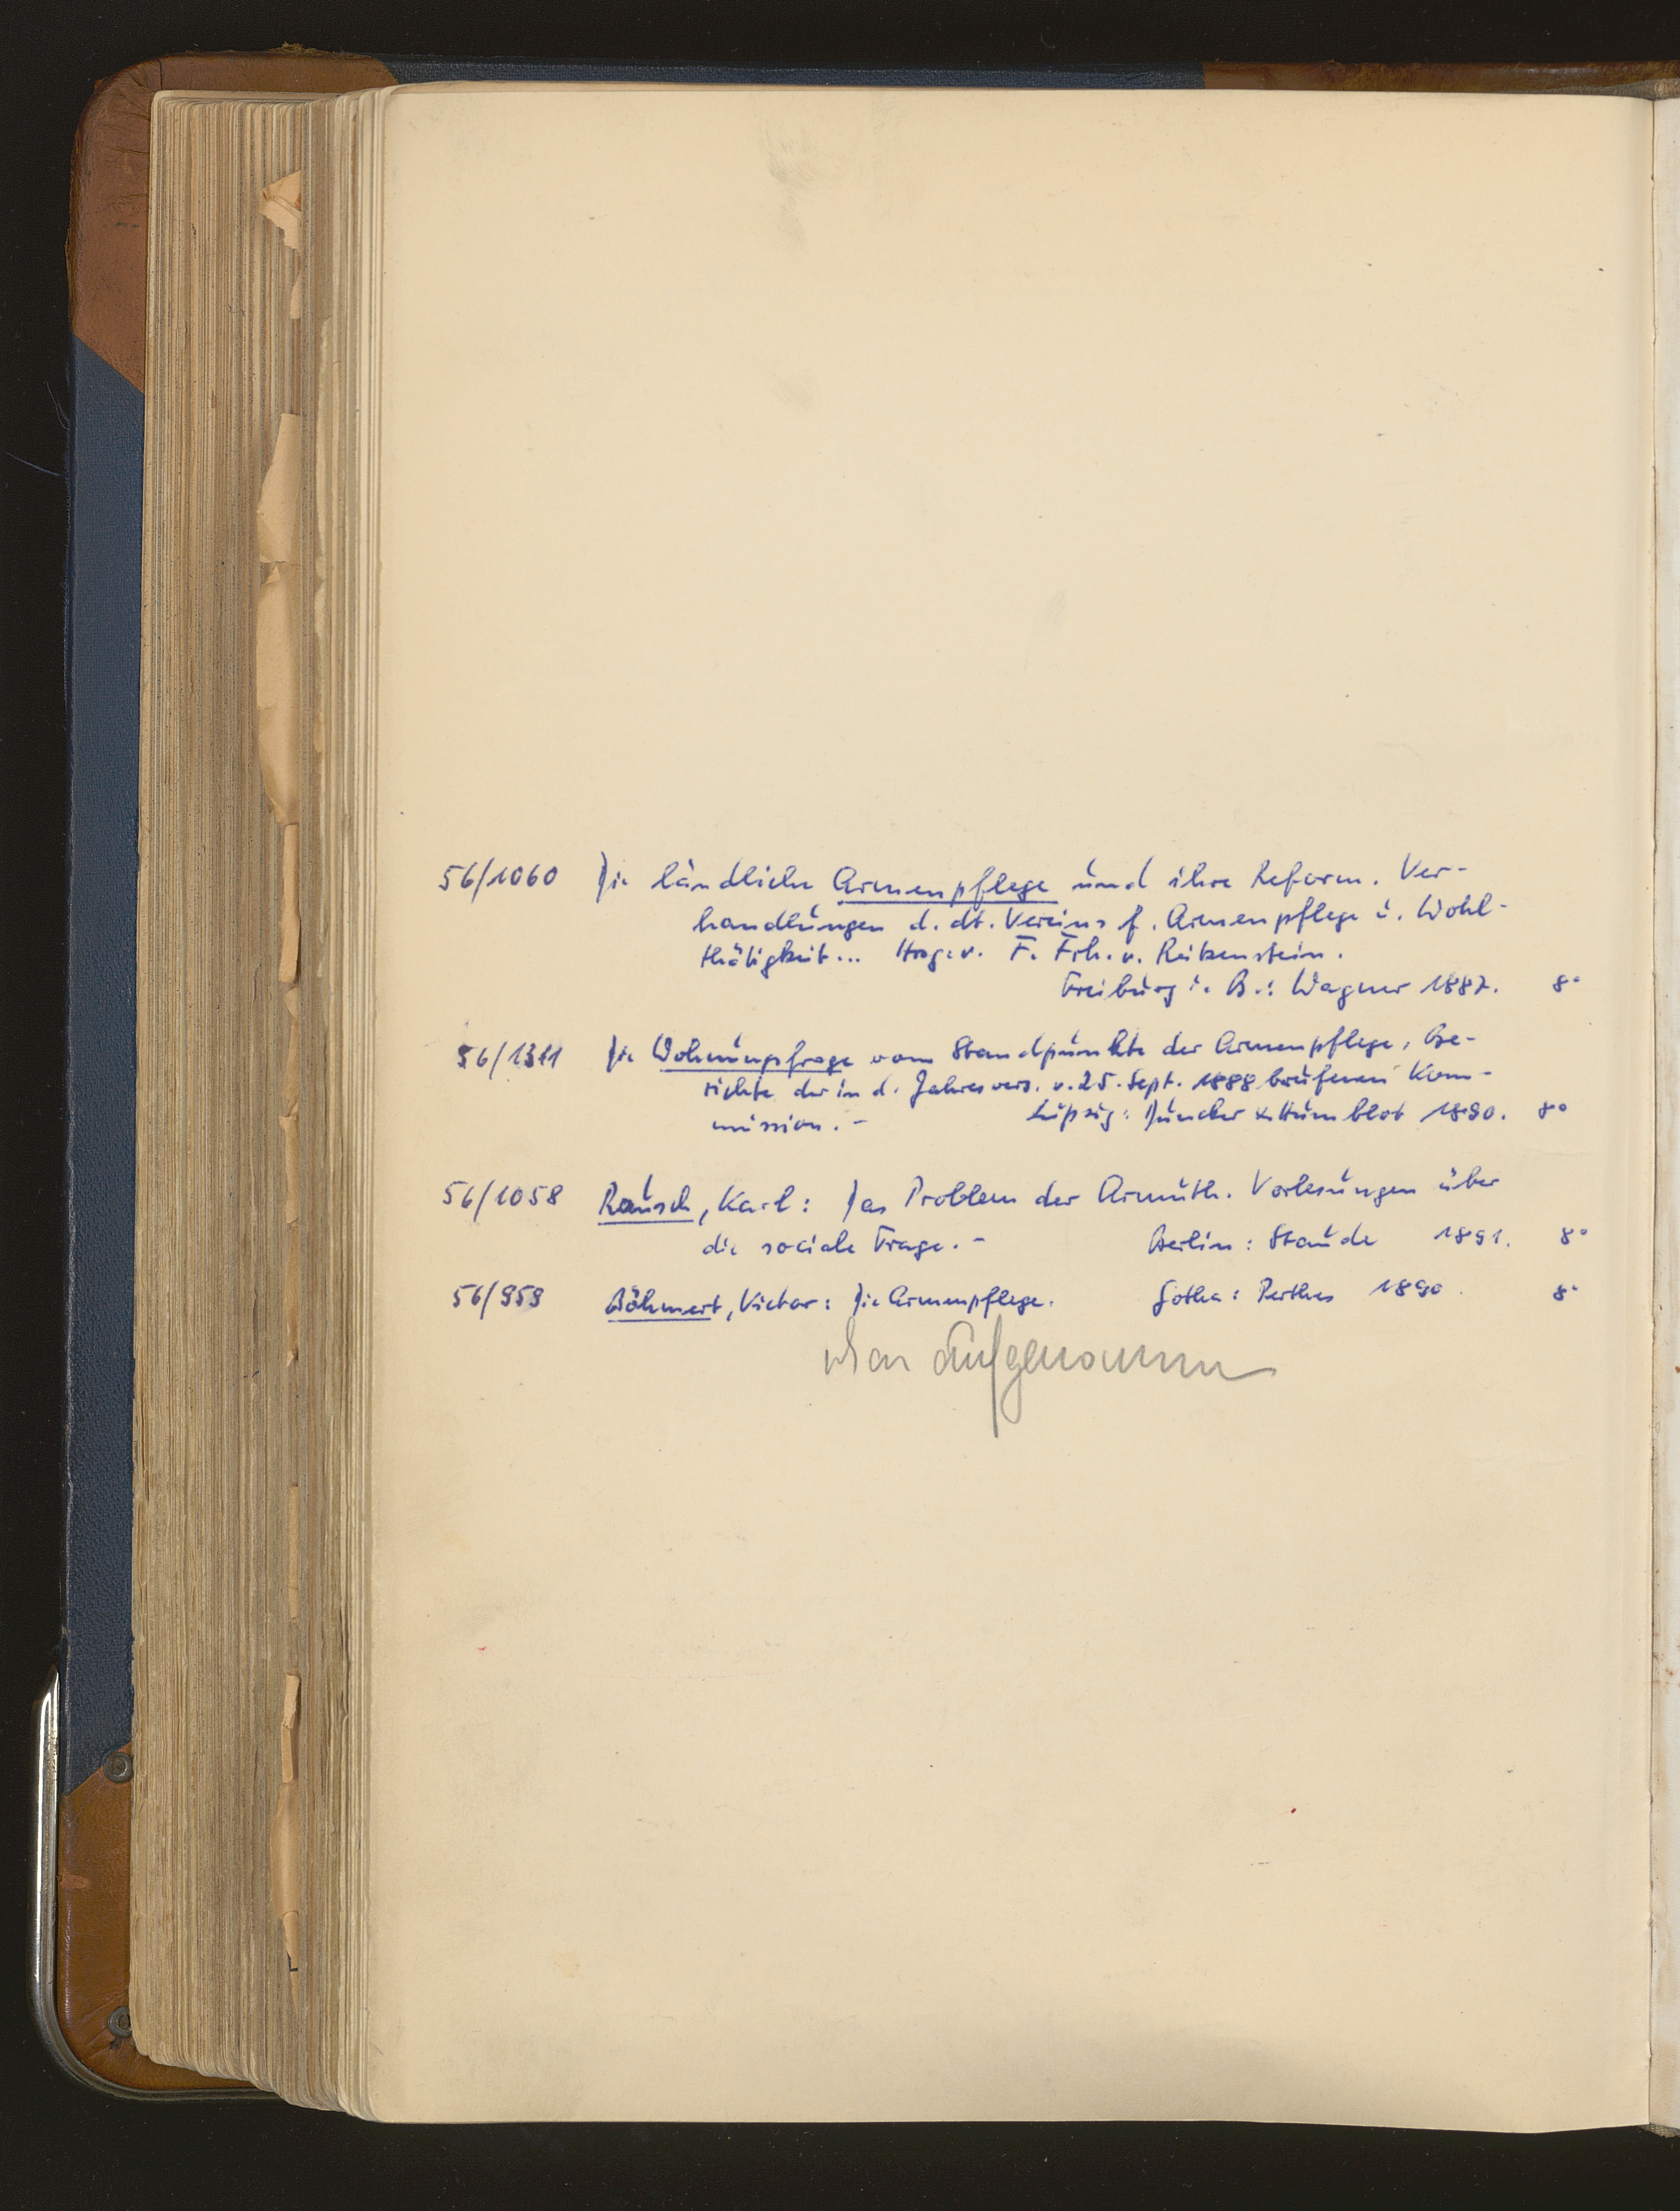 56/1060 Die ländliche Armenpflege und ihre Reform. Ver-
handlungen d. dt. Vereins f. Armenpflege u. Wohl-
thätigkeit... Hrsg. v. F. Frh. v. Reitzenstein.
Freiburg i. B.: Wagner 1887. 8°
56/1311 Die Wohnungsfrage vom Standpunkte der Armenpflege. Be-
richte der in d. Jahresvers. v. 25. Sept. 1888 berufenen Kom-
mission. - Leipzig: Duncker & Humblot 1890. 8°
56/1058 Rausch, Karl: Das Problem der Armuth. Vorlesungen über
die sociale Frage. - Berlin: Staude 1891. 8°
56/959 Böhmert, Victor: Die Armenpflege. Gotha: Perthes 1890. 8°
aufgenommen